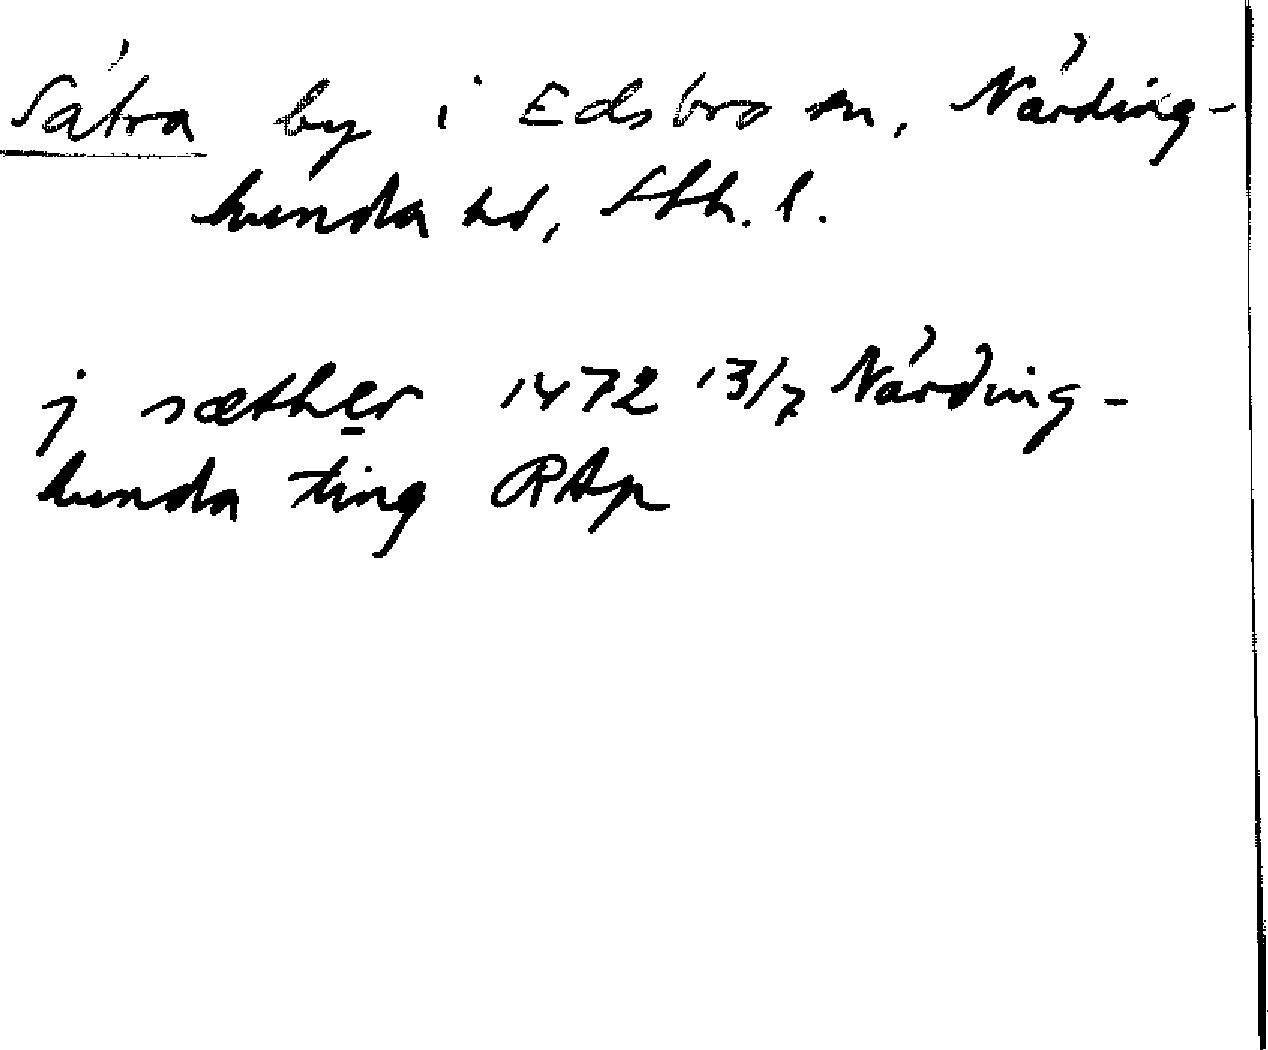 Sätra by i Edsbro sn, Närding-
hunda hd, Sthlm. l.
j sæther 1472 13/7 Närding-
hunda ting RAp